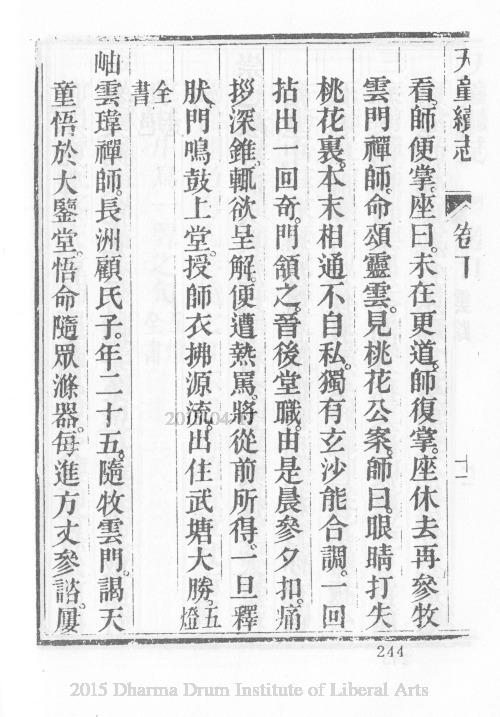 天童續志 卷下 十一
看。師便掌。座曰。未在更道。師復掌。座休去。再參牧
雲門禪師。命頌靈雲。見桃花公案。師曰。眼睛打失
桃花裏。本末相通不自私。獨有玄沙能合調。一回
拈出一回奇。門頷之。晉後堂職。由是晨參夕扣。痛
拶深錐。輒欲呈解。便遭熱罵。將從前所得。一旦釋
肰。門鳴鼓上堂。授師衣拂源流。出住武塘大勝。五燈
全書
岫雲瑋禪師。長洲顧氏子。年二十五。隨牧雲門。謁天
童悟於大鑒堂。悟命隨眾滌器。每進方丈參諮。屢
244
2015 Dharma Drum Institute of Liberal Arts